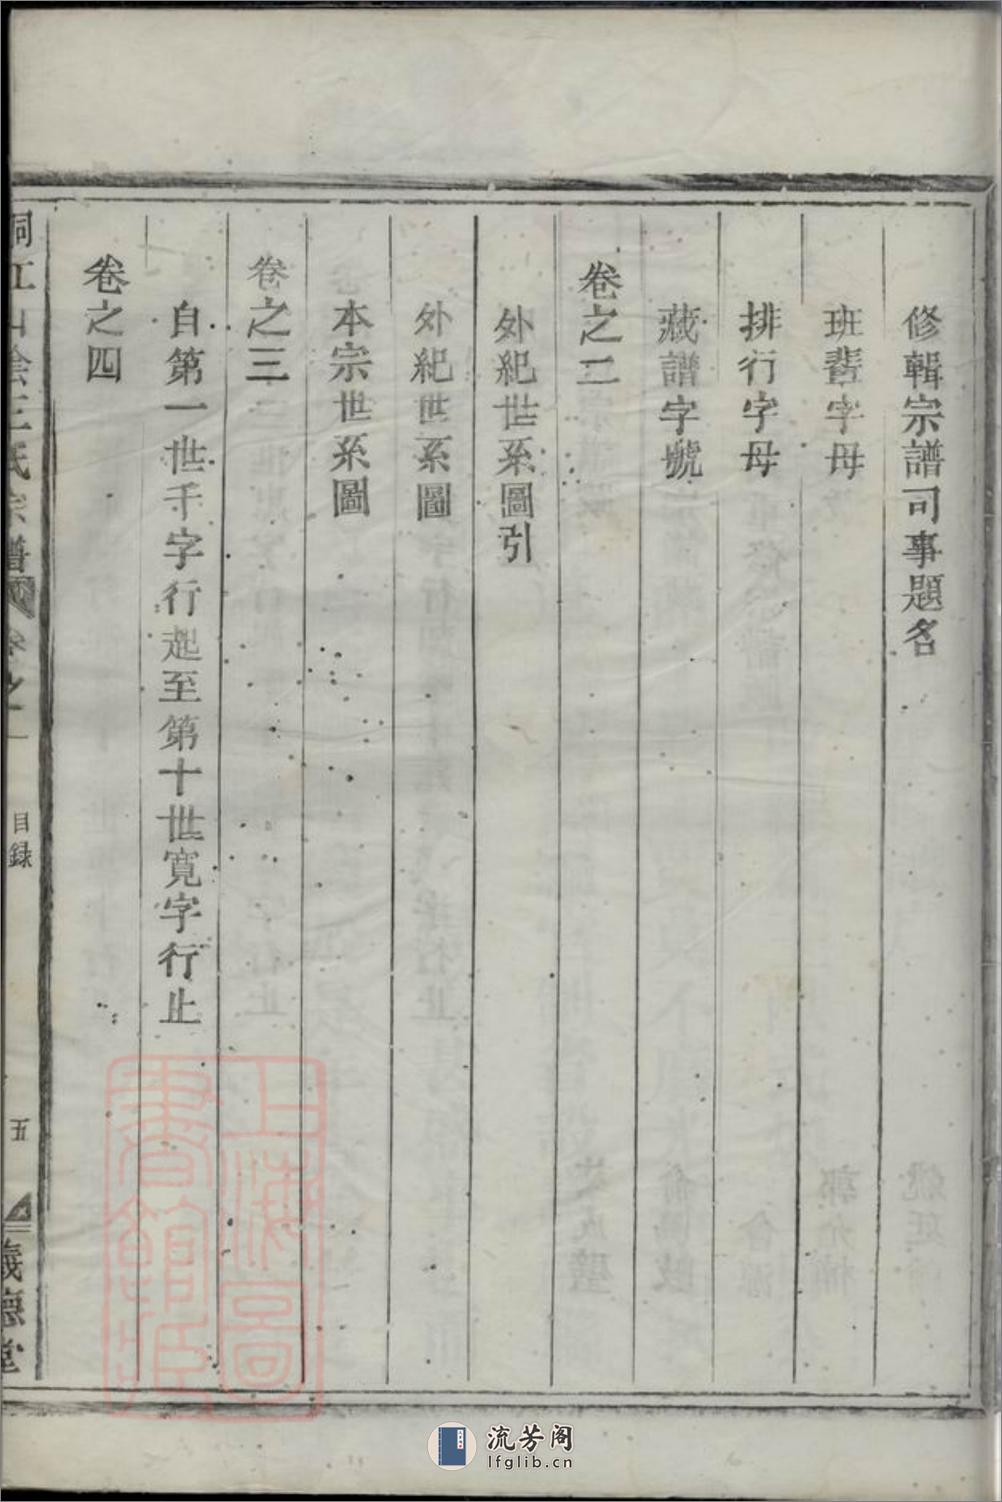 修輯宗譜司事題名
班輩字母
排行字母
藏譜字號
卷之二
外紀世系圖引
外紀世系圖
本宗世系圖
卷之三
自第一世千字行起至第十世寬字行止
卷之四
桐江山陰王氏宗譜 卷之一 目録 五 義德堂
上海圖書館藏
流芳阁
lfglib.cn